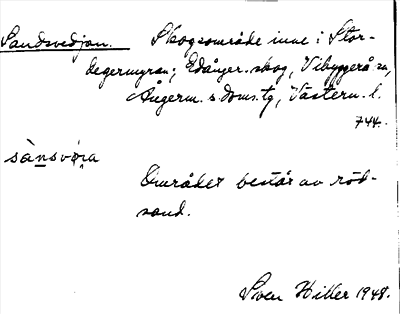 Sandsvedjan. Skogsområde inne i Stor-
degermyran; Edånger. skog, Vibyggerå sn,
Ångerm. s. doms. tg, Västern. l.
744.
sànsvøɪa
Området består av röd-
sand.
Sven Hiller 1948.